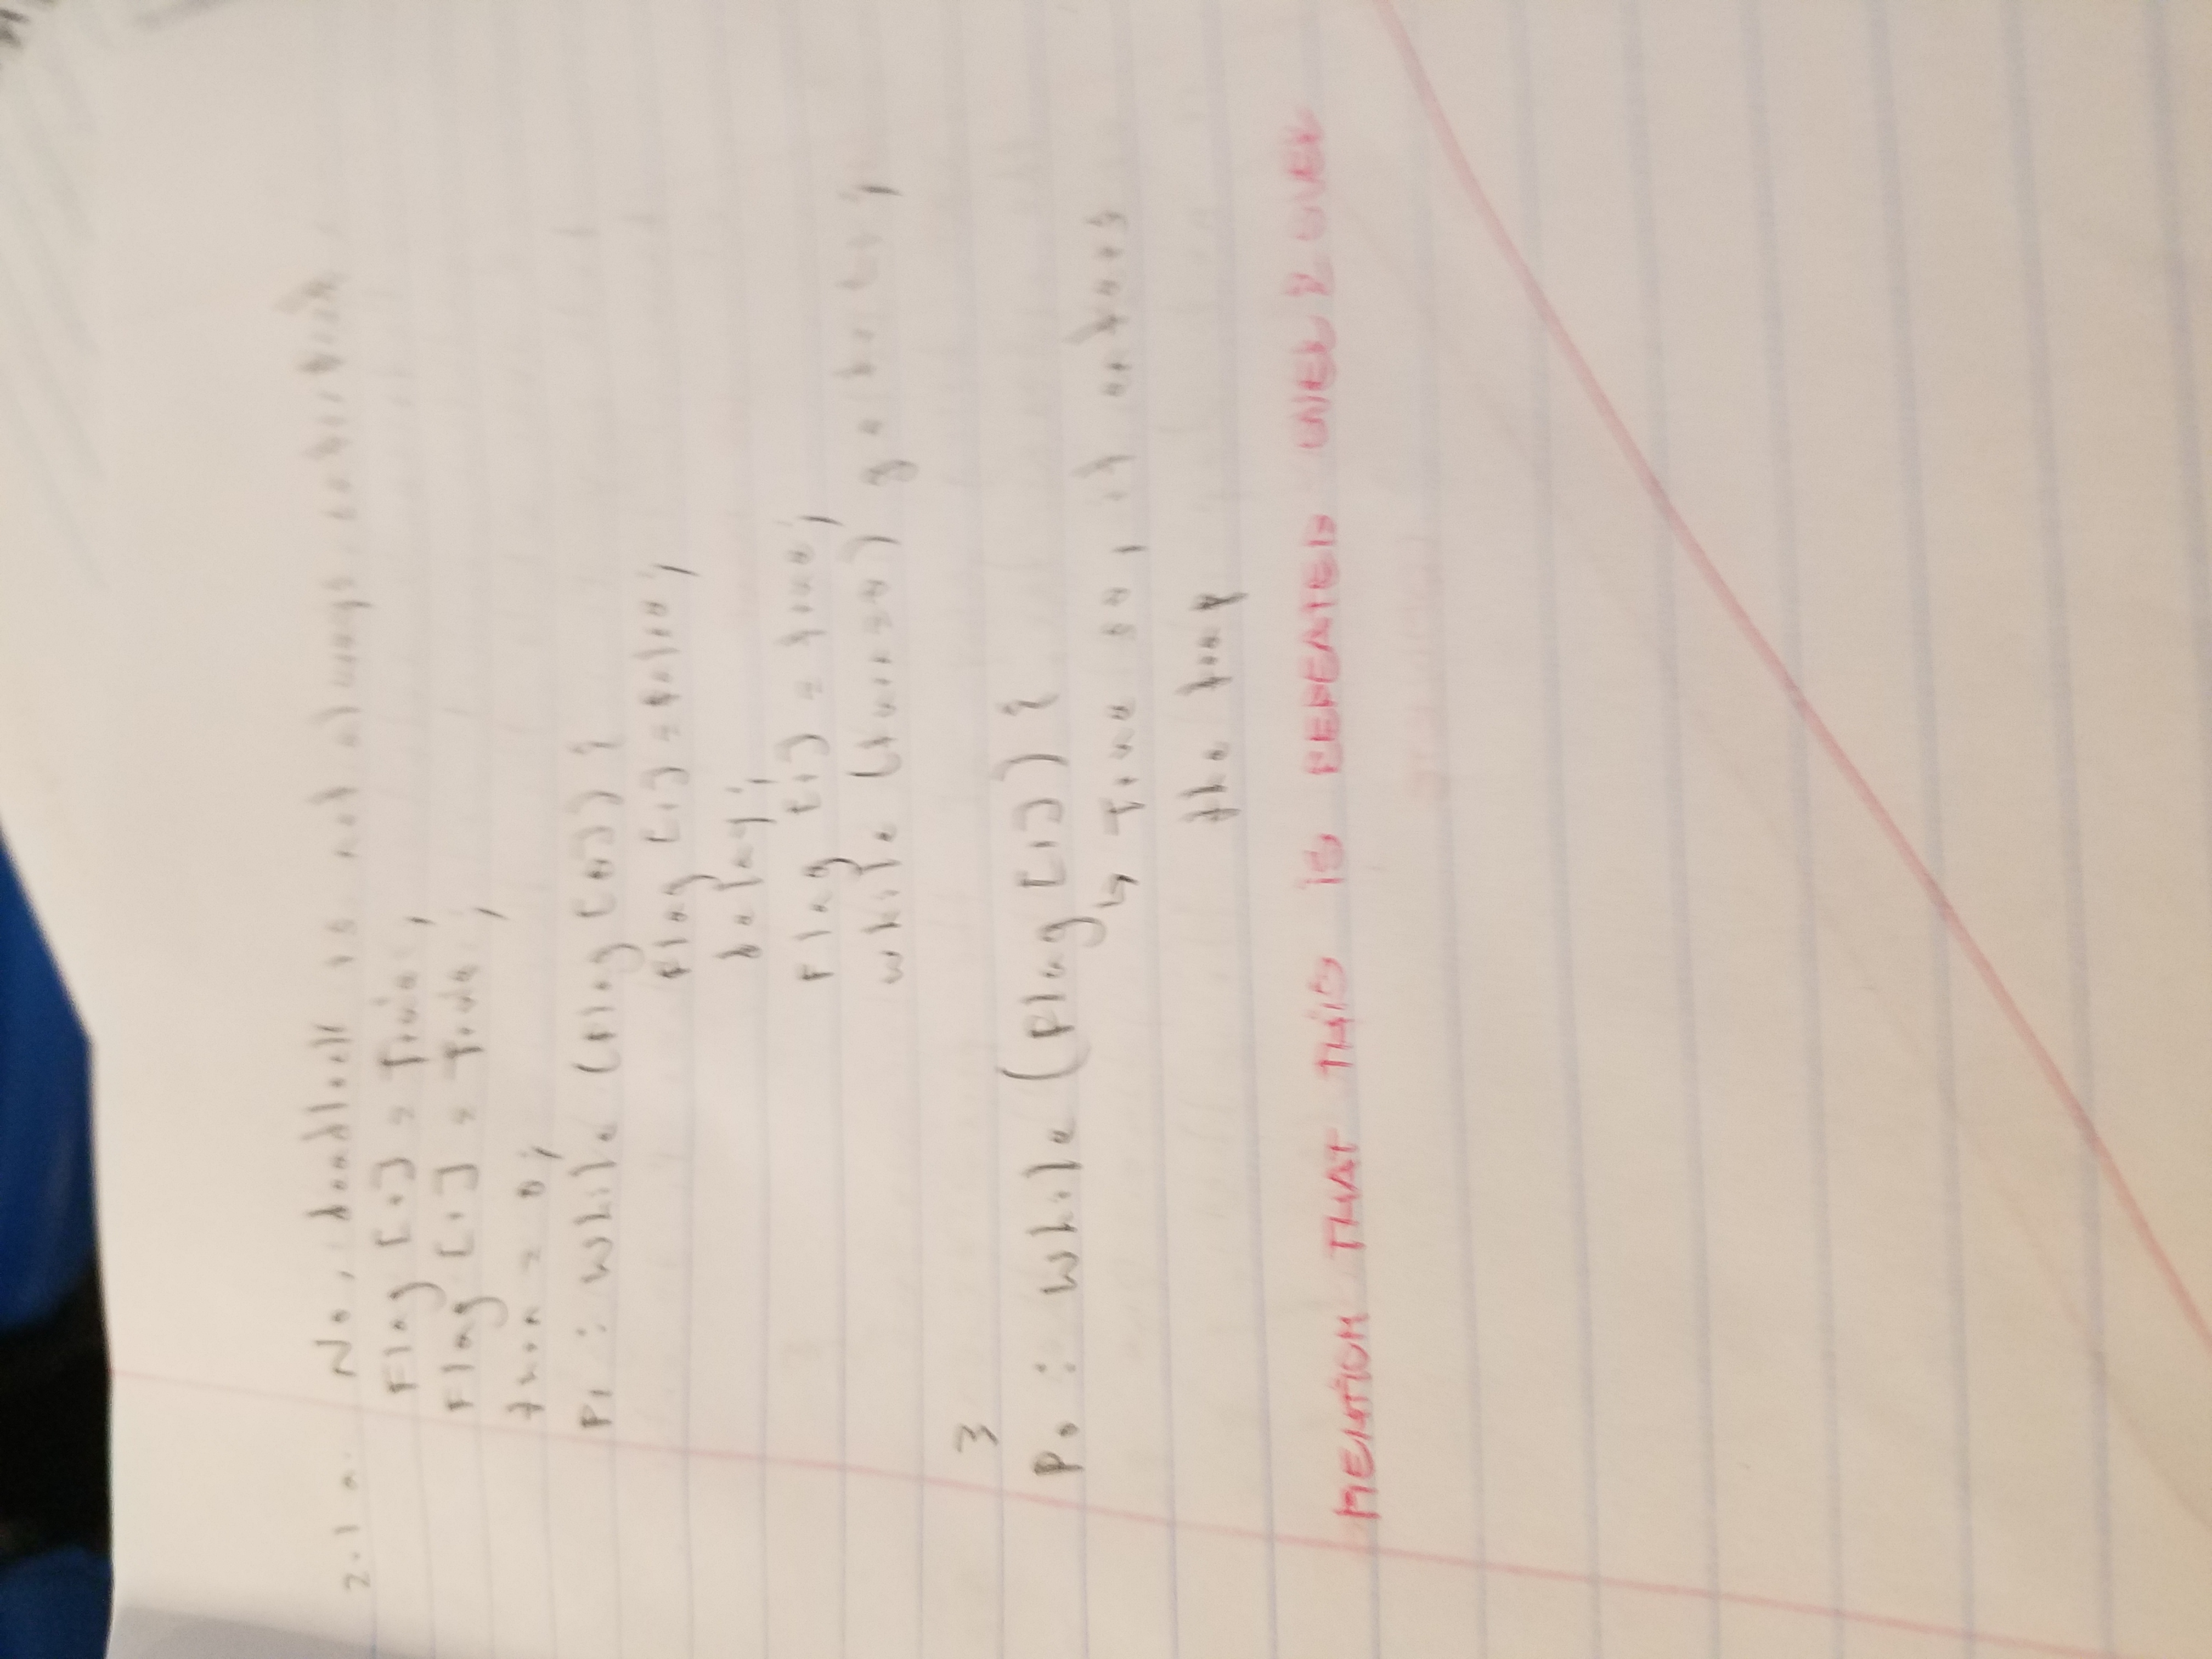 2.1 a. No, deadlock is not always satisfied
Flag [0] = True;
Flag [1] = True;
turn = 0;
P1 : While (Flag [0]) {
Flag [1] = false;
delay;
Flag [1] = true;
while (turn=0) go to
}
P0 : While (Flag [1]) {
↳ True so, it enters
the loop
MENTION THAT THIS IS REPEATED OVER & OVER